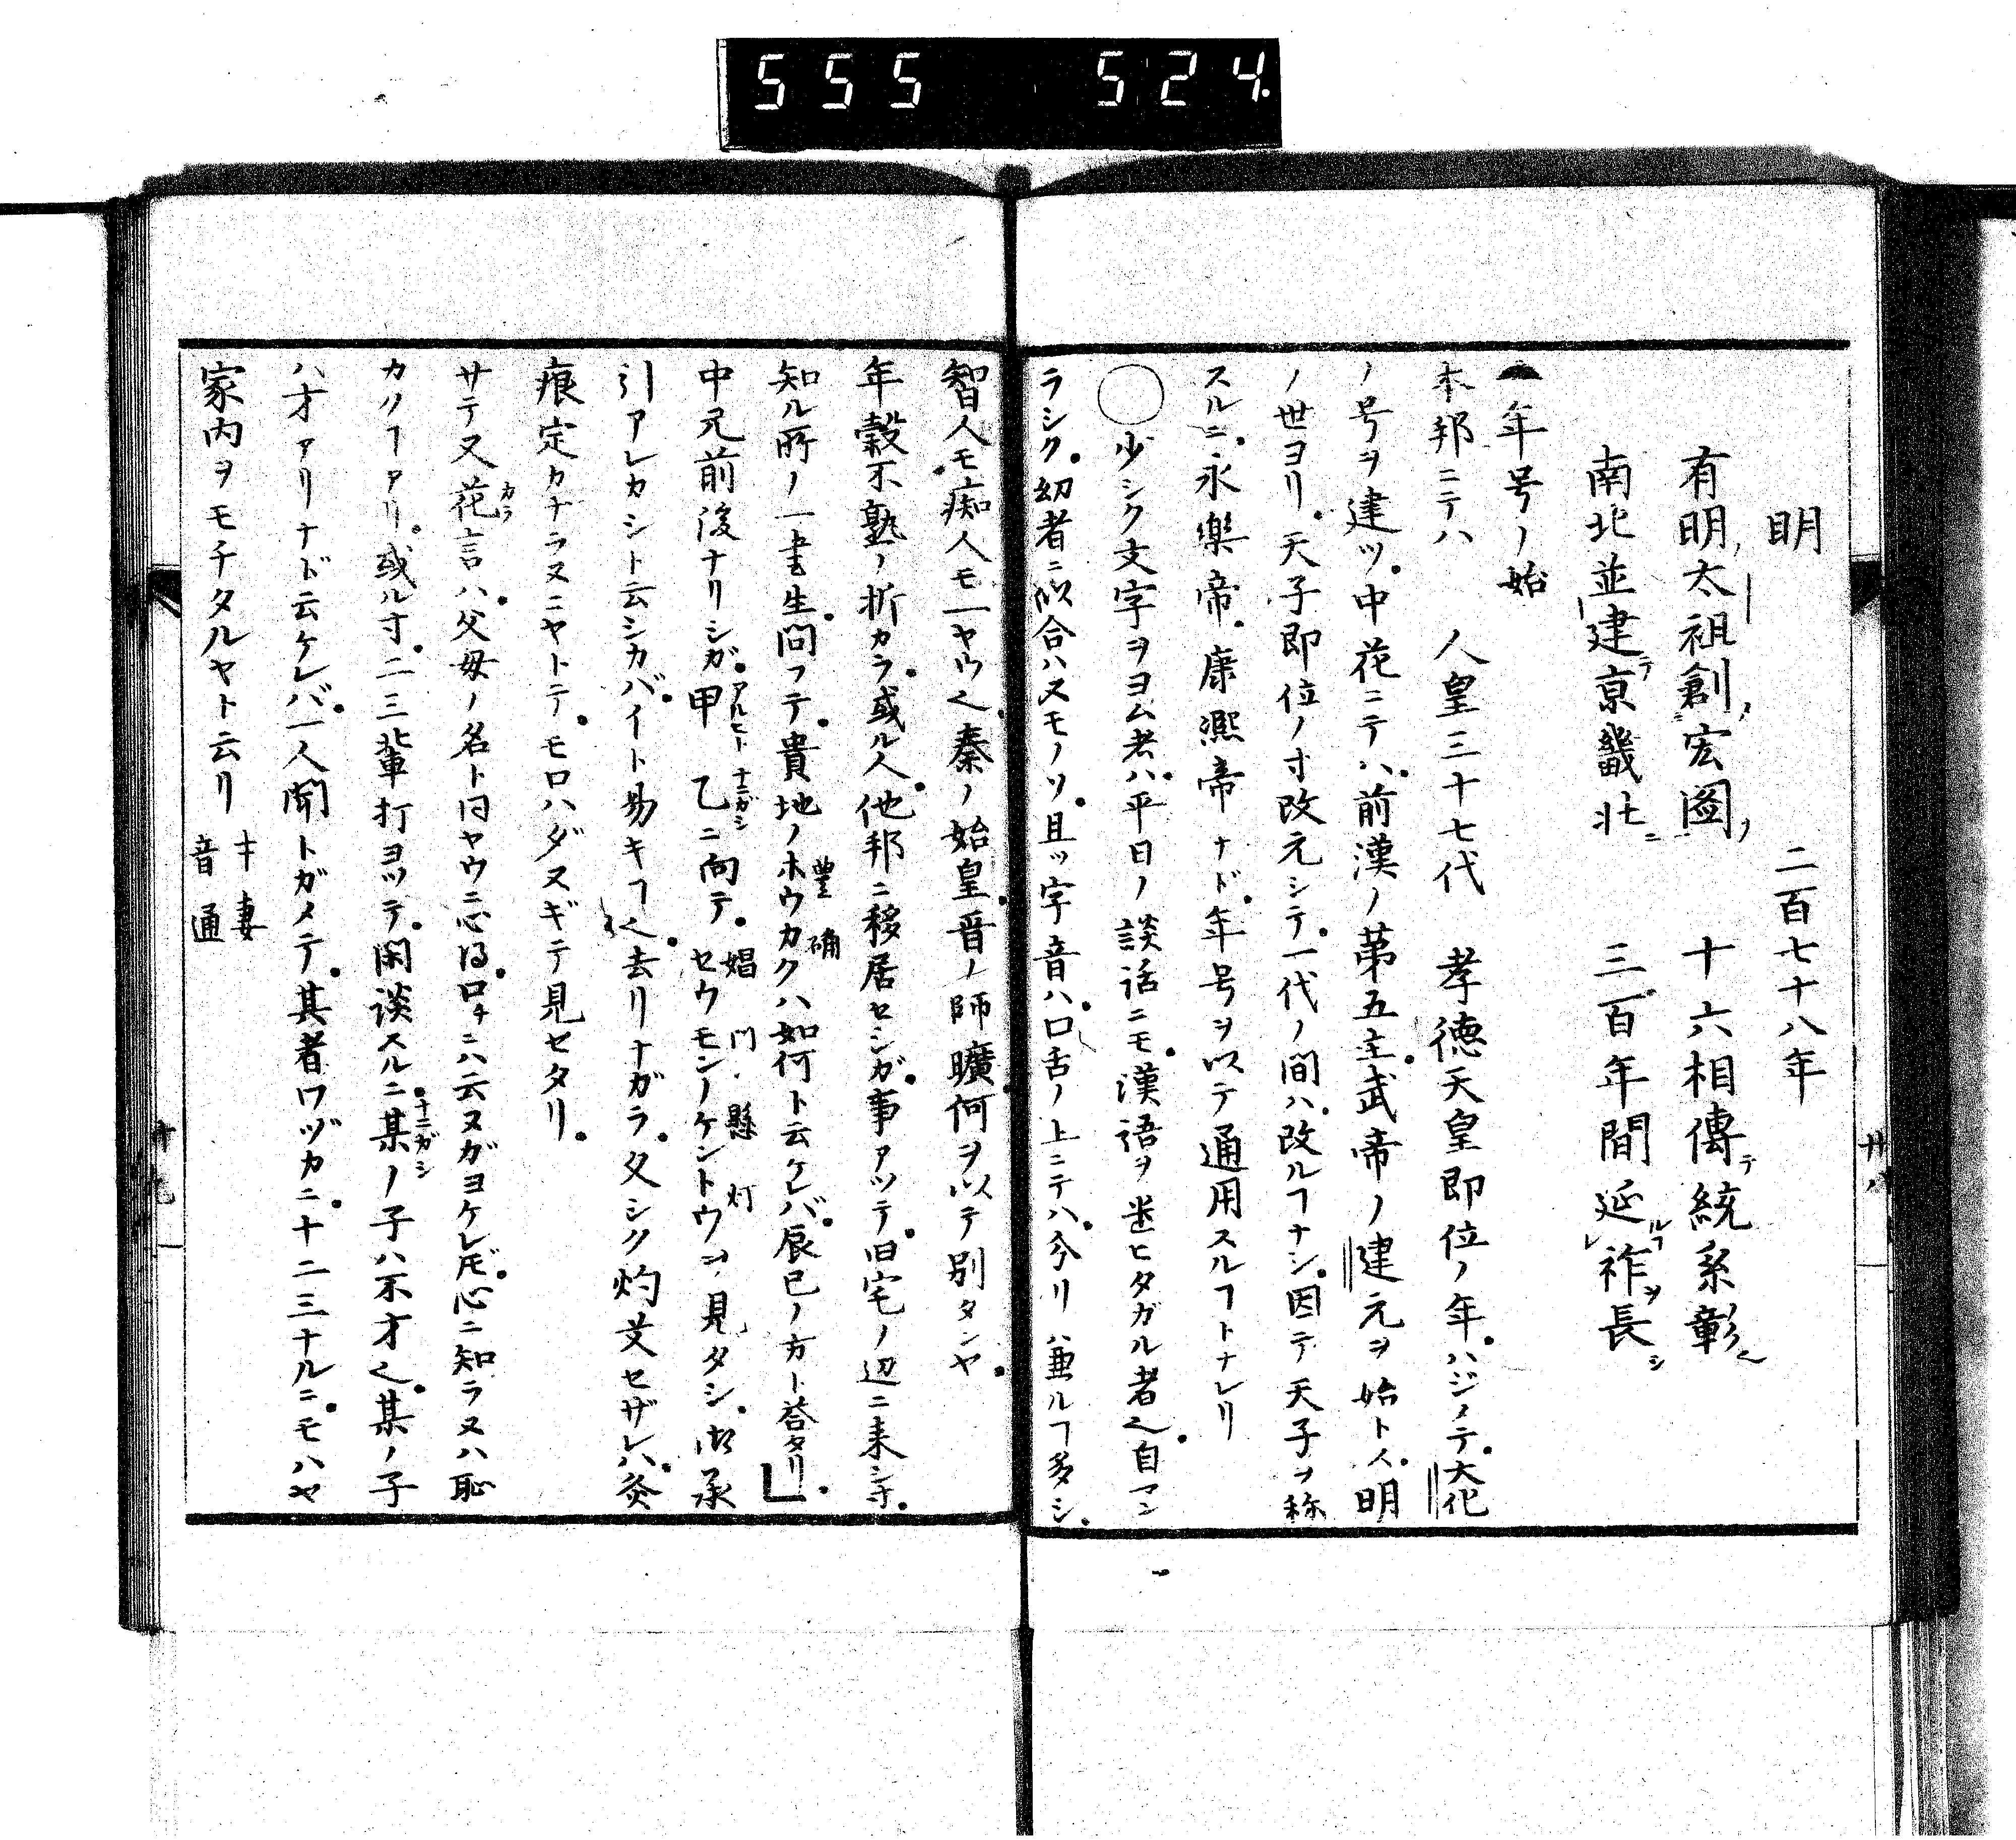 555 524.
明 二百七十八年
有明太祖創宏図 十六相傳テ統系彰
南北並建テ京畿壮ニ 三百年間延ルヿ祚ヲ長シ
年号ノ始
本邦ニテハ 人皇三十七代 孝徳天皇即位ノ年ハジメテ大化
ノ号ヲ建ツ中花ニテハ前漢ノ第五主武帝ノ建元ヲ始トス明
ノ世ヨリ天子即位ノ寸改元シテ一代ノ間ハ改ルヿナシ因テ天子ヲ称
スルニ永樂帝康熙帝ナド年号ヲ以テ通用スルヿトナレリ
〇少シク文字ヲヨム者ハ平日ノ談話ニモ漢語ヲ遣ヒタガル者也自マン
ラシク幼者ニ似合ハヌモノソ且ツ字音ハ口舌ノ上ニテハ分リ兼ルヿ多シ
廿八
智人モ痴人モ一ヤウ也秦ノ始皇晋ノ師曠何ヲ以テ別タンヤ
年穀不熟ノ折カラ或ル人他邦ニ移居セシガ事アツテ旧宅ノ辺ニ来シ寸
知ル所ノ一書生問フテ貴地ノホウカクハ如何ト云ケレバ辰巳ノ方ト荅タリ
豊 確
中元前後ナリシガ甲 乙ニ向テセウモンノケントウヲ見タシ御承
アルヒト ナニガシ 娼 門 懸 灯
引アレカシト云シカバイト易キヿ也去リナガラ久シク灼艾セザレハ灸
痕定カナラヌニヤトテモロハダヌギテ見セタリ
サテ又花言ハ父母ノ名ト同ヤウニ心得口チニハ云ヌガヨケレ𪜈心ニ知ラヌハ恥
カラ
カノヿアリ或ル寸二三輩打ヨツテ閑談スルニ某ノ子ハ不才也某ノ子
ナニガシ
ハ才アリナド云ケレバ一人聞トガメテ其者ワヅカニ十二三ナルニモハヤ
家内ヲモチタルヤト云リ 才妻
音通
十九